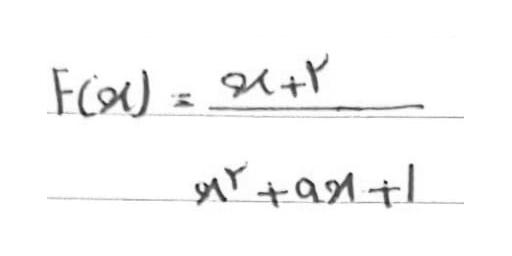 F(x) = x+۲
x^۲ + ax + ۱